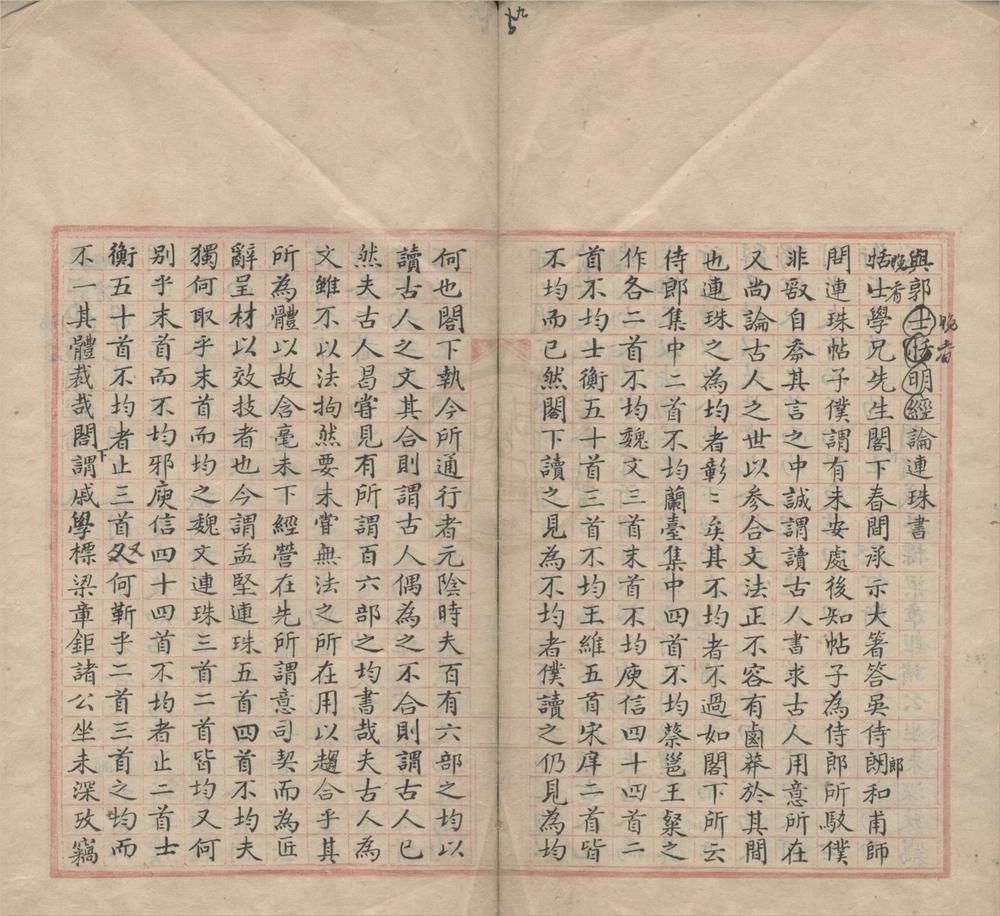 與郭士恬明經論連珠書
晚香
恬士學兄先生閣下春間承示大著答吳侍朗和甫師
晚香
郎
問連珠帖子僕謂有未安處後知帖子為侍郎所駮僕
非敢自奓其言之中誠謂讀古人書求古人用意所在
又尚論古人之世以參合文法正不容有鹵莽於其間
也連珠之為均者彰〻矣其不均者不過如閣下所云
侍郎集中二首不均蘭臺集中四首不均蔡邕王粲之
作各二首不均魏文三首末首不均庾信四十四首二
首不均士衡五十首三首不均王維五首宋庠二首皆
不均而已然閣下讀之見為不均者僕讀之仍見為均
何也閣下執今所通行者元陰時夫百有六部之均以
讀古人之文其合則謂古人偶為之不合則謂古人已
然夫古人曷嘗見有所謂百六部之均書哉夫古人為
文雖不以法拘然要未嘗無法之所在用以趨合乎其
所為體以故含毫未下經營在先所謂意司契而為匠
辭呈材以效技者也今謂孟堅連珠五首四首不均夫
獨何取乎末首而均之魏文連珠三首二首皆均又何
別乎末首而不均邪庾信四十四首不均者止二首士
衡五十首不均者止三首又何靳乎二首三首之均而
不一其體裁哉閣下謂戚學標梁章鉅諸公坐未深攷竊